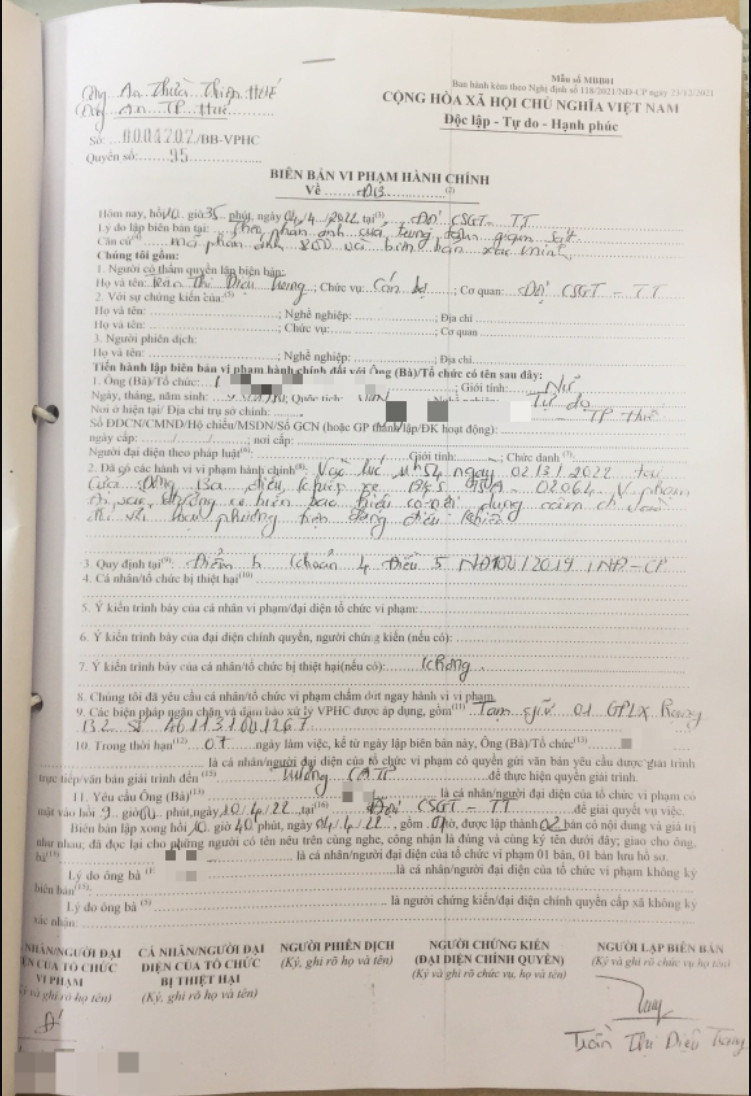 Mẫu số MBB01
Ban hành kèm theo Nghị định số 118/2021/NĐ-CP ngày 23/12/2021
Công An Thừa Thiên Huế
Công An TP Huế
CỘNG HÒA XÃ HỘI CHỦ NGHĨA VIỆT NAM
Độc lập - Tự do - Hạnh phúc
Số: 0004202/BB-VPHC
Quyển số: 95
BIÊN BẢN VI PHẠM HÀNH CHÍNH
Về ĐB (2)
Hôm nay, hồi 10 giờ 35 phút, ngày 04/4/2022 tại (3) Đội CSGT - TT
Lý do lập biên bản tại: Theo phản ánh của trung tâm giám sát
Căn cứ (4) mã phản ánh và biên bản xác minh
Chúng tôi gồm:
1. Người có thẩm quyền lập biên bản:
Họ và tên: Trần Thị Diệu Trang; Chức vụ: Cán bộ; Cơ quan: Đội CSGT - TT
2. Với sự chứng kiến của: (5)
Họ và tên: ; Nghề nghiệp: ; Địa chỉ
Họ và tên: ; Chức vụ: ; Cơ quan
3. Người phiên dịch:
Họ và tên: ; Nghề nghiệp: ; Địa chỉ
Tiến hành lập biên bản vi phạm hành chính đối với Ông (Bà)/Tổ chức có tên sau đây:
1. Ông (Bà)/Tổ chức: ; Giới tính: Nữ
Ngày, tháng, năm sinh: ; Quốc tịch: Tự do
Nơi ở hiện tại/ Địa chỉ trụ sở chính: TP Huế
Số ĐDCN/CMND/Hộ chiếu/MSDN/Số GCN (hoặc GP thành lập/ĐK hoạt động):
ngày cấp: / / ; nơi cấp:
Người đại diện theo pháp luật (6): Giới tính: ; Chức danh (7):
2. Đã có các hành vi vi phạm hành chính (8): Vào lúc 11h54 ngày 02/3/2022 tại
cửa Đông Ba điều khiển xe BKS 75A-02064 vi phạm
đi vào đường có biển báo hiệu có nội dung cấm đi vào
đối với loại phương tiện đang điều khiển
3. Quy định tại (9): Điểm b khoản 4 Điều 5 NĐ 100/2019/NĐ-CP
4. Cá nhân/tổ chức bị thiệt hại (10)
5. Ý kiến trình bày của cá nhân vi phạm/đại diện tổ chức vi phạm:
6. Ý kiến trình bày của đại diện chính quyền, người chứng kiến (nếu có):
7. Ý kiến trình bày của cá nhân/tổ chức bị thiệt hại(nếu có): không
8. Chúng tôi đã yêu cầu cá nhân/tổ chức vi phạm chấm dứt ngay hành vi vi phạm.
9. Các biện pháp ngăn chặn và đảm bảo xử lý VPHC được áp dụng, gồm (11) Tạm giữ 01 GPLX hạng
B2 số 461131001267
10. Trong thời hạn (12) 07 ngày làm việc, kể từ ngày lập biên bản này, Ông (Bà)/Tổ chức (13)
là cá nhân/người đại diện của tổ chức vi phạm có quyền gửi văn bản yêu cầu được giải trình
trực tiếp/văn bản giải trình đến (15) Trưởng CATP để thực hiện quyền giải trình.
11. Yêu cầu Ông (Bà) (13) là cá nhân/người đại diện của tổ chức vi phạm có
mặt vào hồi 9 giờ 00 phút, ngày 10/4/22, tại (16) Đội CSGT - TT để giải quyết vụ việc.
Biên bản lập xong hồi 10 giờ 40 phút, ngày 04/4/22, gồm 01 tờ, được lập thành 02 bản có nội dung và giá trị
như nhau; đã đọc lại cho những người có tên nêu trên cùng nghe, công nhận là đúng và cùng ký tên dưới đây; giao cho ông,
bà (13) là cá nhân/người đại diện của tổ chức vi phạm 01 bản, 01 bản lưu hồ sơ.
Lý do ông bà là cá nhân/người đại diện của tổ chức vi phạm không ký
biên bản (15):
Lý do ông bà (5) là người chứng kiến/đại diện chính quyền cấp xã không ký
xác nhận:
NHÂN/NGƯỜI ĐẠI
ỆN CỦA TỔ CHỨC
VI PHẠM
ý và ghi rõ họ và tên)
CÁ NHÂN/NGƯỜI ĐẠI
DIỆN CỦA TỔ CHỨC
BỊ THIỆT HẠI
(Ký, ghi rõ họ và tên)
NGƯỜI PHIÊN DỊCH
(Ký, ghi rõ họ và tên)
NGƯỜI CHỨNG KIẾN
(ĐẠI DIỆN CHÍNH QUYỀN)
(Ký và ghi rõ chức vụ, họ và tên)
NGƯỜI LẬP BIÊN BẢN
(Ký và ghi rõ chức vụ họ tên)
Trần Thị Diệu Trang